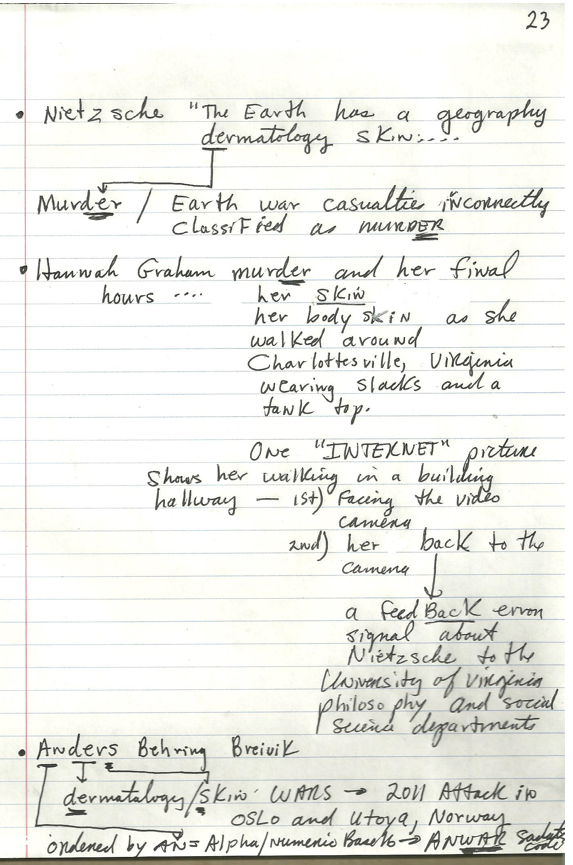 23
• Nietzsche "The Earth has a geography
dermatology skin:....
Murder / Earth war casualties incorrectly
classified as murDER
• Hannah Graham murder and her final
hours .... her skin
her body skin as she
walked around
Charlottesville, Virginia
wearing slacks and a
tank top.
One "INTERNET" picture
shows her walking in a building
hallway — 1st) facing the video
camera
2nd) her back to the
camera
a feedBack error
signal about
Nietzsche to the
University of Virginia
philosophy and social
science departments
• Anders Behring Breivik
dermatology/skin WARS → 2011 Attack in
OSLO and Utoya, Norway
ordered by AN = Alpha/Numeric → ANWAR Sadat code